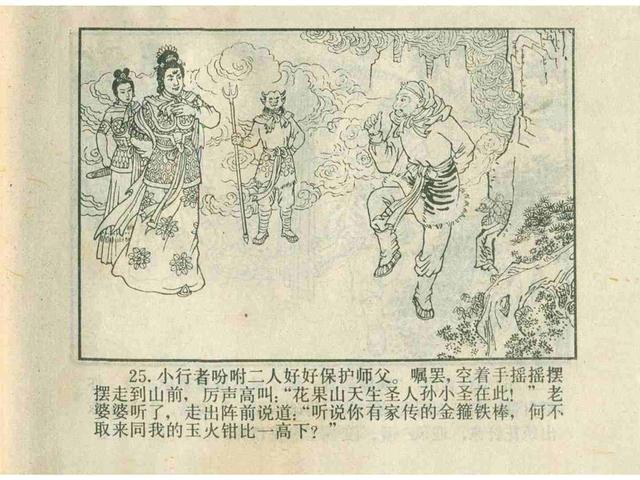 25. 小行者吩咐二人好好保护师父。嘱罢，空着手摇摇摆
摆走到山前，厉声高叫：“花果山天生圣人孙小圣在此！”老
婆婆听了，走出阵前说道：“听说你有家传的金箍铁棒，何不
取来同我的玉火钳比一高下？”